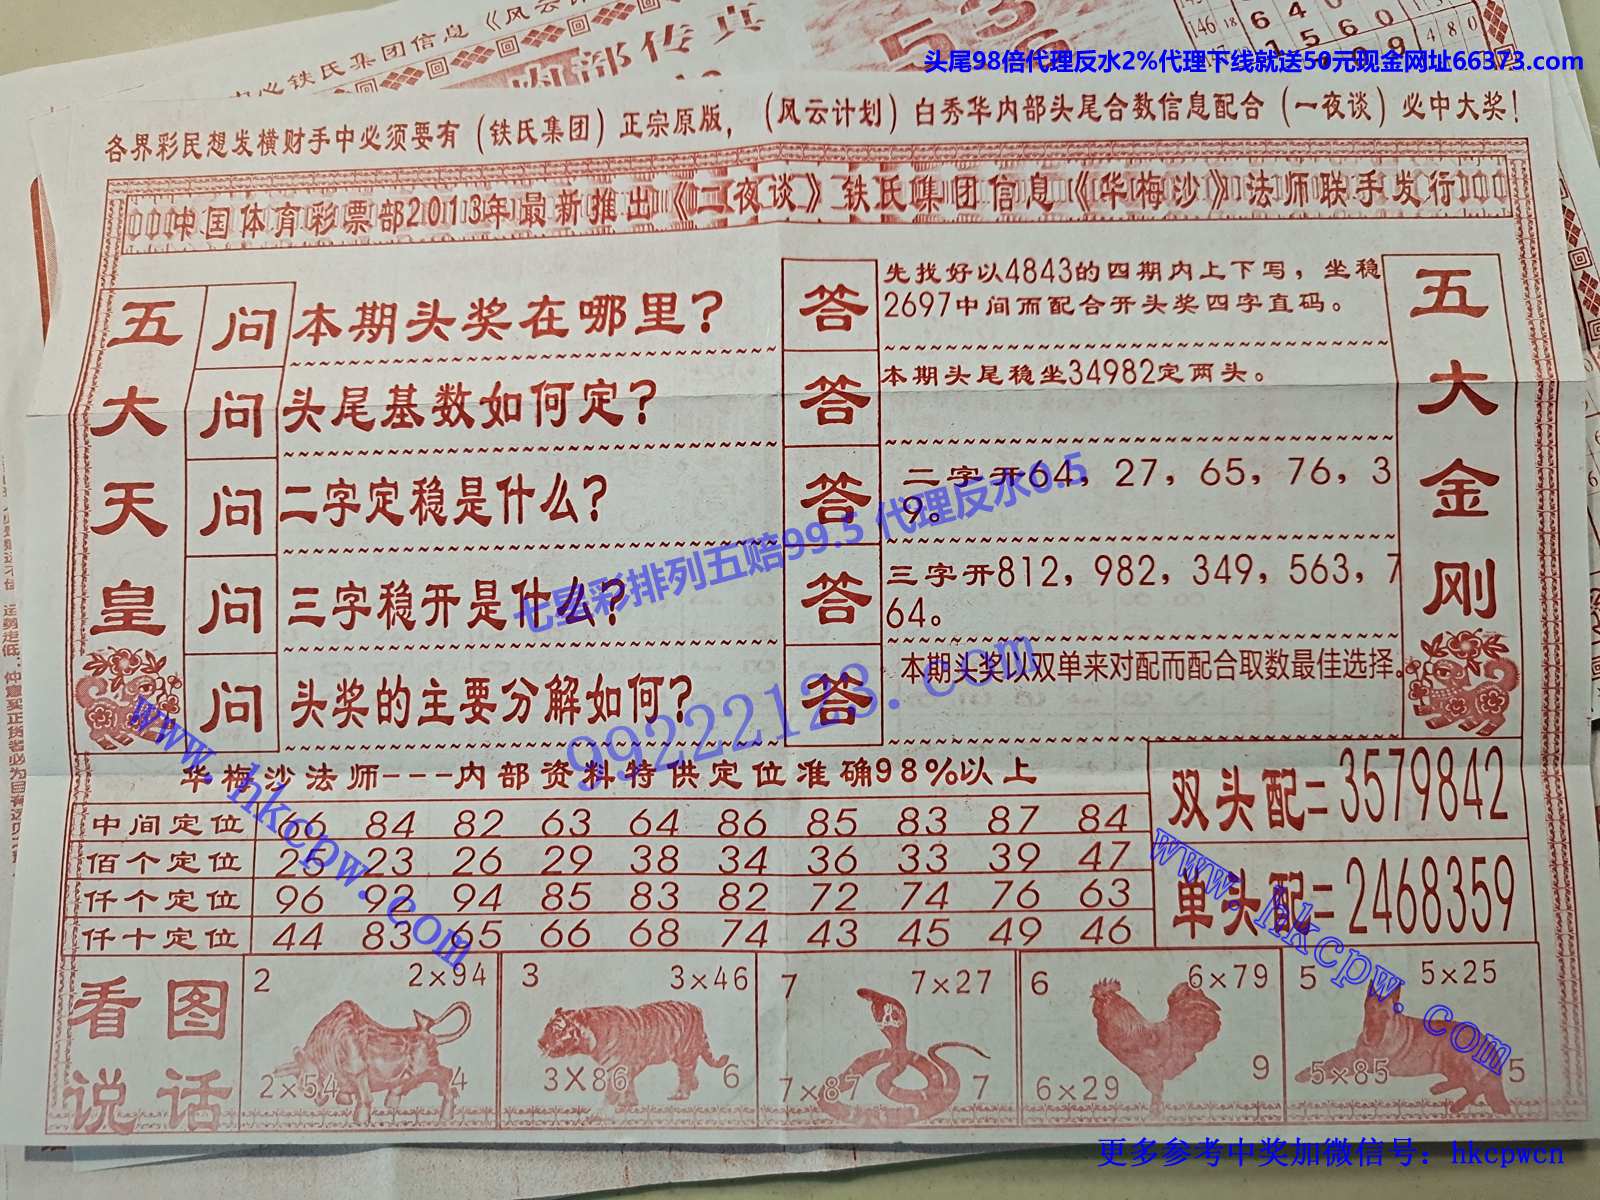 中心铁氏集团信息《风云计
内部传真
536
146 18 6 4 0
1 5 6 0
4 8 0
头尾98倍代理反水2%代理下线就送50元现金网址66373.com
各界彩民想发横财手中必须要有（铁氏集团）正宗原版，（风云计划）白秀华内部头尾合数信息配合（一夜谈）必中大奖！
中国体育彩票部2013年最新推出《二夜谈》铁氏集团信息《华梅沙》法师联手发行
五大天皇
问 本期头奖在哪里？
答 先找好以4843的四期内上下写，坐稳
2697中间而配合开头奖四字直码。
问 头尾基数如何定？
答 本期头尾稳坐34982定两头。
问 二字定稳是什么？
答 二字开64，27，65，76，3
9。
问 三字稳开是什么？
答 三字开812，982，349，563，7
64。
问 头奖的主要分解如何？
答 本期头奖以双单来对配而配合取数最佳选择。
五大金刚
七星彩排列五赔99.5 代理反水0.5
99222123.com
www.hkcpw.com
www.hkcpw.com
华梅沙法师---内部资料特供定位准确98%以上
中间定位 66 84 82 63 64 86 85 83 87 84
佰个定位 25 23 26 29 38 34 36 33 39 47
仟个定位 96 92 94 85 83 82 72 74 76 63
仟十定位 44 83 65 66 68 74 43 45 49 46
双头配=3579842
单头配=2468359
看图说话
2 2×94
2×54 4
3 3×46
3×86 6
7 7×27
7×87 7
6 6×79
6×29 9
5 5×25
5×85 5
更多参考中奖加微信号：hkcpwcn